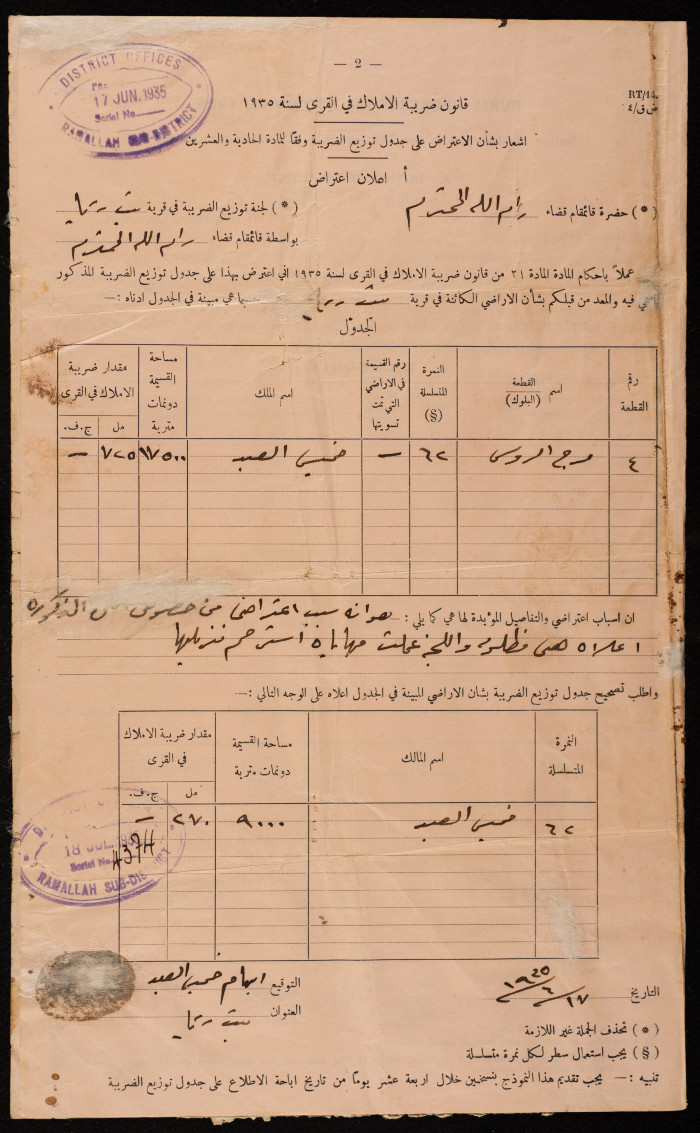 — ٢ —
DISTRICT OFFICES
17 JUN. 1935
Serial No
RAMALLAH SUB-DISTRICT
RT/14.
ض ق/٤
قانون ضريبة الاملاك في القرى لسنة ١٩٣٥
اشعار بشأن الاعتراض على جدول توزيع الضريبة وفقا للمادة الحادية والعشرين
أ اعلان اعتراض
(*) حضرة قائمقام قضاء رام الله المحترم
(*) لجنة توزيع الضريبة في قرية بيت ريما
بواسطة قائمقام قضاء رام الله المحترم
عملاً باحكام المادة المادة ٢١ من قانون ضريبة الاملاك في القرى لسنة ١٩٣٥ اني اعترض بهذا على جدول توزيع الضريبة المذكور
فيه والمعد من قبلكم بشأن الاراضي الكائنة في قرية بيت ريما حسبما هي مبينة في الجدول ادناه :—
الجدول
رقم القطعة
اسم القطعة (البلوك)
النمرة المتسلسلة (§)
رقم القسيمة في الاراضي التي تمت تسويتها
اسم المالك
مساحة القسيمة دونمات مترية
مقدار ضريبة الاملاك في القرى
مل ج.ف.
٤ مرج الروس ٦٢ — خميس العبد ١٧٥٠٠ ٧٢٥ —
ان اسباب اعتراضي والتفاصيل المؤيدة لها هي كما يلي : هو انه سبب اعتراضي من خصوص المذكوره
اعلاه هي مظلمه واللجنة عملت استرحم تنزيلها
واطلب تصحيح جدول توزيع الضريبة بشان الاراضي المبينة في الجدول اعلاه على الوجه التالي :—
النمرة المتسلسلة
اسم المالك
مساحة القسيمة دونمات مترية
مقدار ضريبة الاملاك في القرى
مل ج.ف.
٦٢ خميس العبد ٩٠٠٠ ٢٧٠ —
18 JUL.
Serial No. 4374
RAMALLAH SUB-DIS
التاريخ ١٧/٦/١٩٣٥
التوقيع ابهام خميس العبد
العنوان بيت ريما
(*) تحذف الجملة غير اللازمة
(§) يجب استعمال سطر لكل نمرة متسلسلة
تنبيه :— يجب تقديم هذا النموذج بنسختين خلال اربعة عشر يوما من تاريخ اباحة الاطلاع على جدول توزيع الضريبة